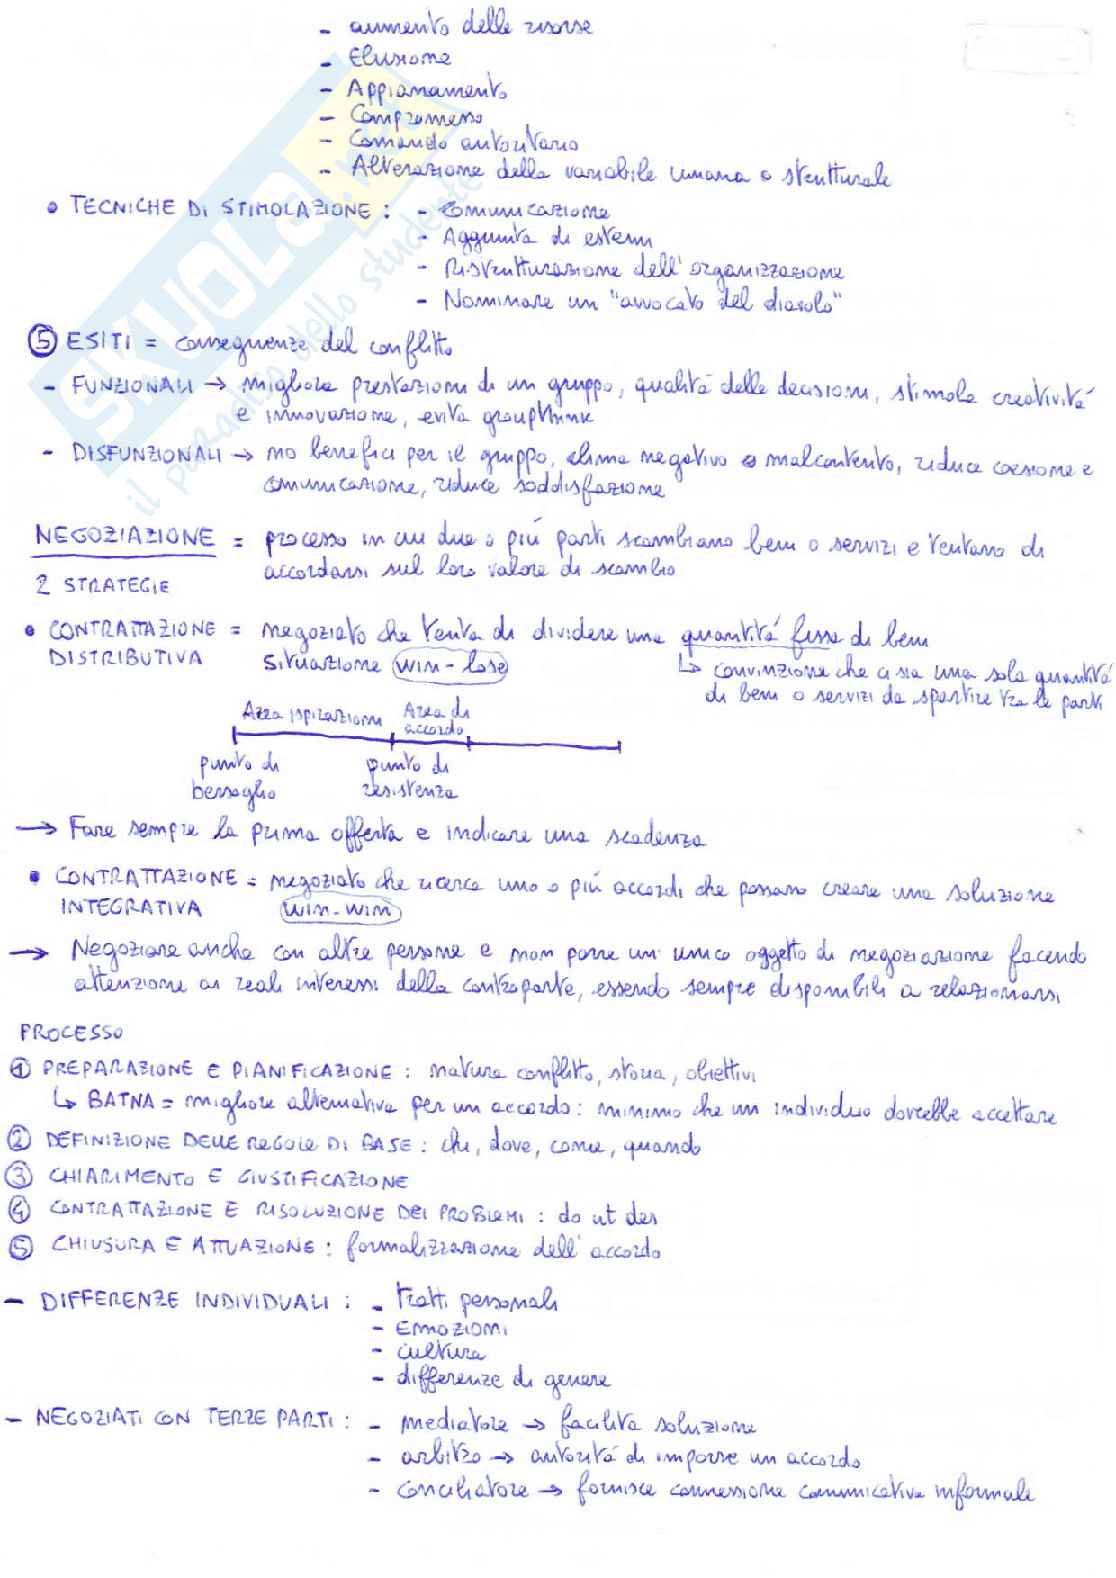 - aumento delle risorse
- Elusione
- Appianamento
- Compromesso
- Comando autoritario
- Alterazione della variabile umana o strutturale
• TECNICHE DI STIMOLAZIONE : - Comunicazione
- Aggiunta di esterni
- Ristrutturazione dell'organizzazione
- Nominare un "avvocato del diavolo"
⑤ ESITI = conseguenze del conflitto
- FUNZIONALI → migliora prestazioni di un gruppo, qualità delle decisioni, stimola creatività
e innovazione, evita groupthink
- DISFUNZIONALI → no benefici per il gruppo, clima negativo e malcontento, riduce coesione e
comunicazione, riduce soddisfazione
NEGOZIAZIONE = processo in cui due o più parti scambiano beni o servizi e tentano di
accordarsi sul loro valore di scambio
2 STRATEGIE
• CONTRATTAZIONE = negoziato che tenta di dividere una quantità fissa di beni
DISTRIBUTIVA situazione win-lose ↳ convinzione che ci sia una sola quantità
di beni o servizi da spartire tra le parti
Area ispirazioni Area di
accordo
punto di punto di
bersaglio resistenza
→ Fare sempre la prima offerta e indicare una scadenza
• CONTRATTAZIONE = negoziato che ricerca uno o più accordi che possano creare una soluzione
INTEGRATIVA win-win
→ Negoziare anche con altre persone e non porre un unico oggetto di negoziazione facendo
attenzione ai reali interessi della controparte, essendo sempre disponibili a relazionarsi
PROCESSO
① PREPARAZIONE E PIANIFICAZIONE : natura conflitto, storia, obiettivi
↳ BATNA = migliore alternativa per un accordo : minimo che un individuo dovrebbe accettare
② DEFINIZIONE DELLE REGOLE DI BASE : chi, dove, come, quando
③ CHIARIMENTO E GIUSTIFICAZIONE
④ CONTRATTAZIONE E RISOLUZIONE DEI PROBLEMI : do ut des
⑤ CHIUSURA E ATTUAZIONE : formalizzazione dell'accordo
- DIFFERENZE INDIVIDUALI : - tratti personali
- Emozioni
- cultura
- differenze di genere
- NEGOZIATI CON TERZE PARTI : - mediatore → facilita soluzione
- arbitro → autorità di imporre un accordo
- conciliatore → fornisce connessione comunicativa informale
SKUOLA.net
il paradiso dello studente